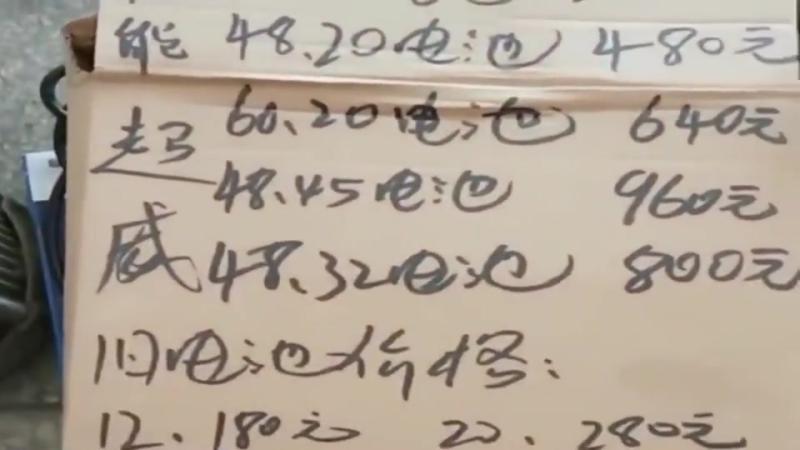 能 48.20电池 480元
60、20电池 640元
超
48、45电池 960元
威 48、32电池 800元
旧电池价格:
12、180元 20、280元